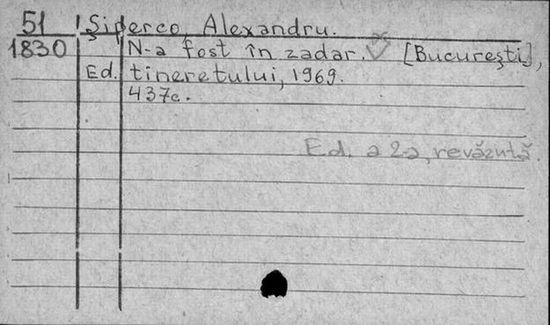 51 Şiperco, Alexandru.
1830 N-a fost în zadar. [Bucureşti],
Ed. tineretului, 1969.
437c.
Ed. a 2-a, revăzută.